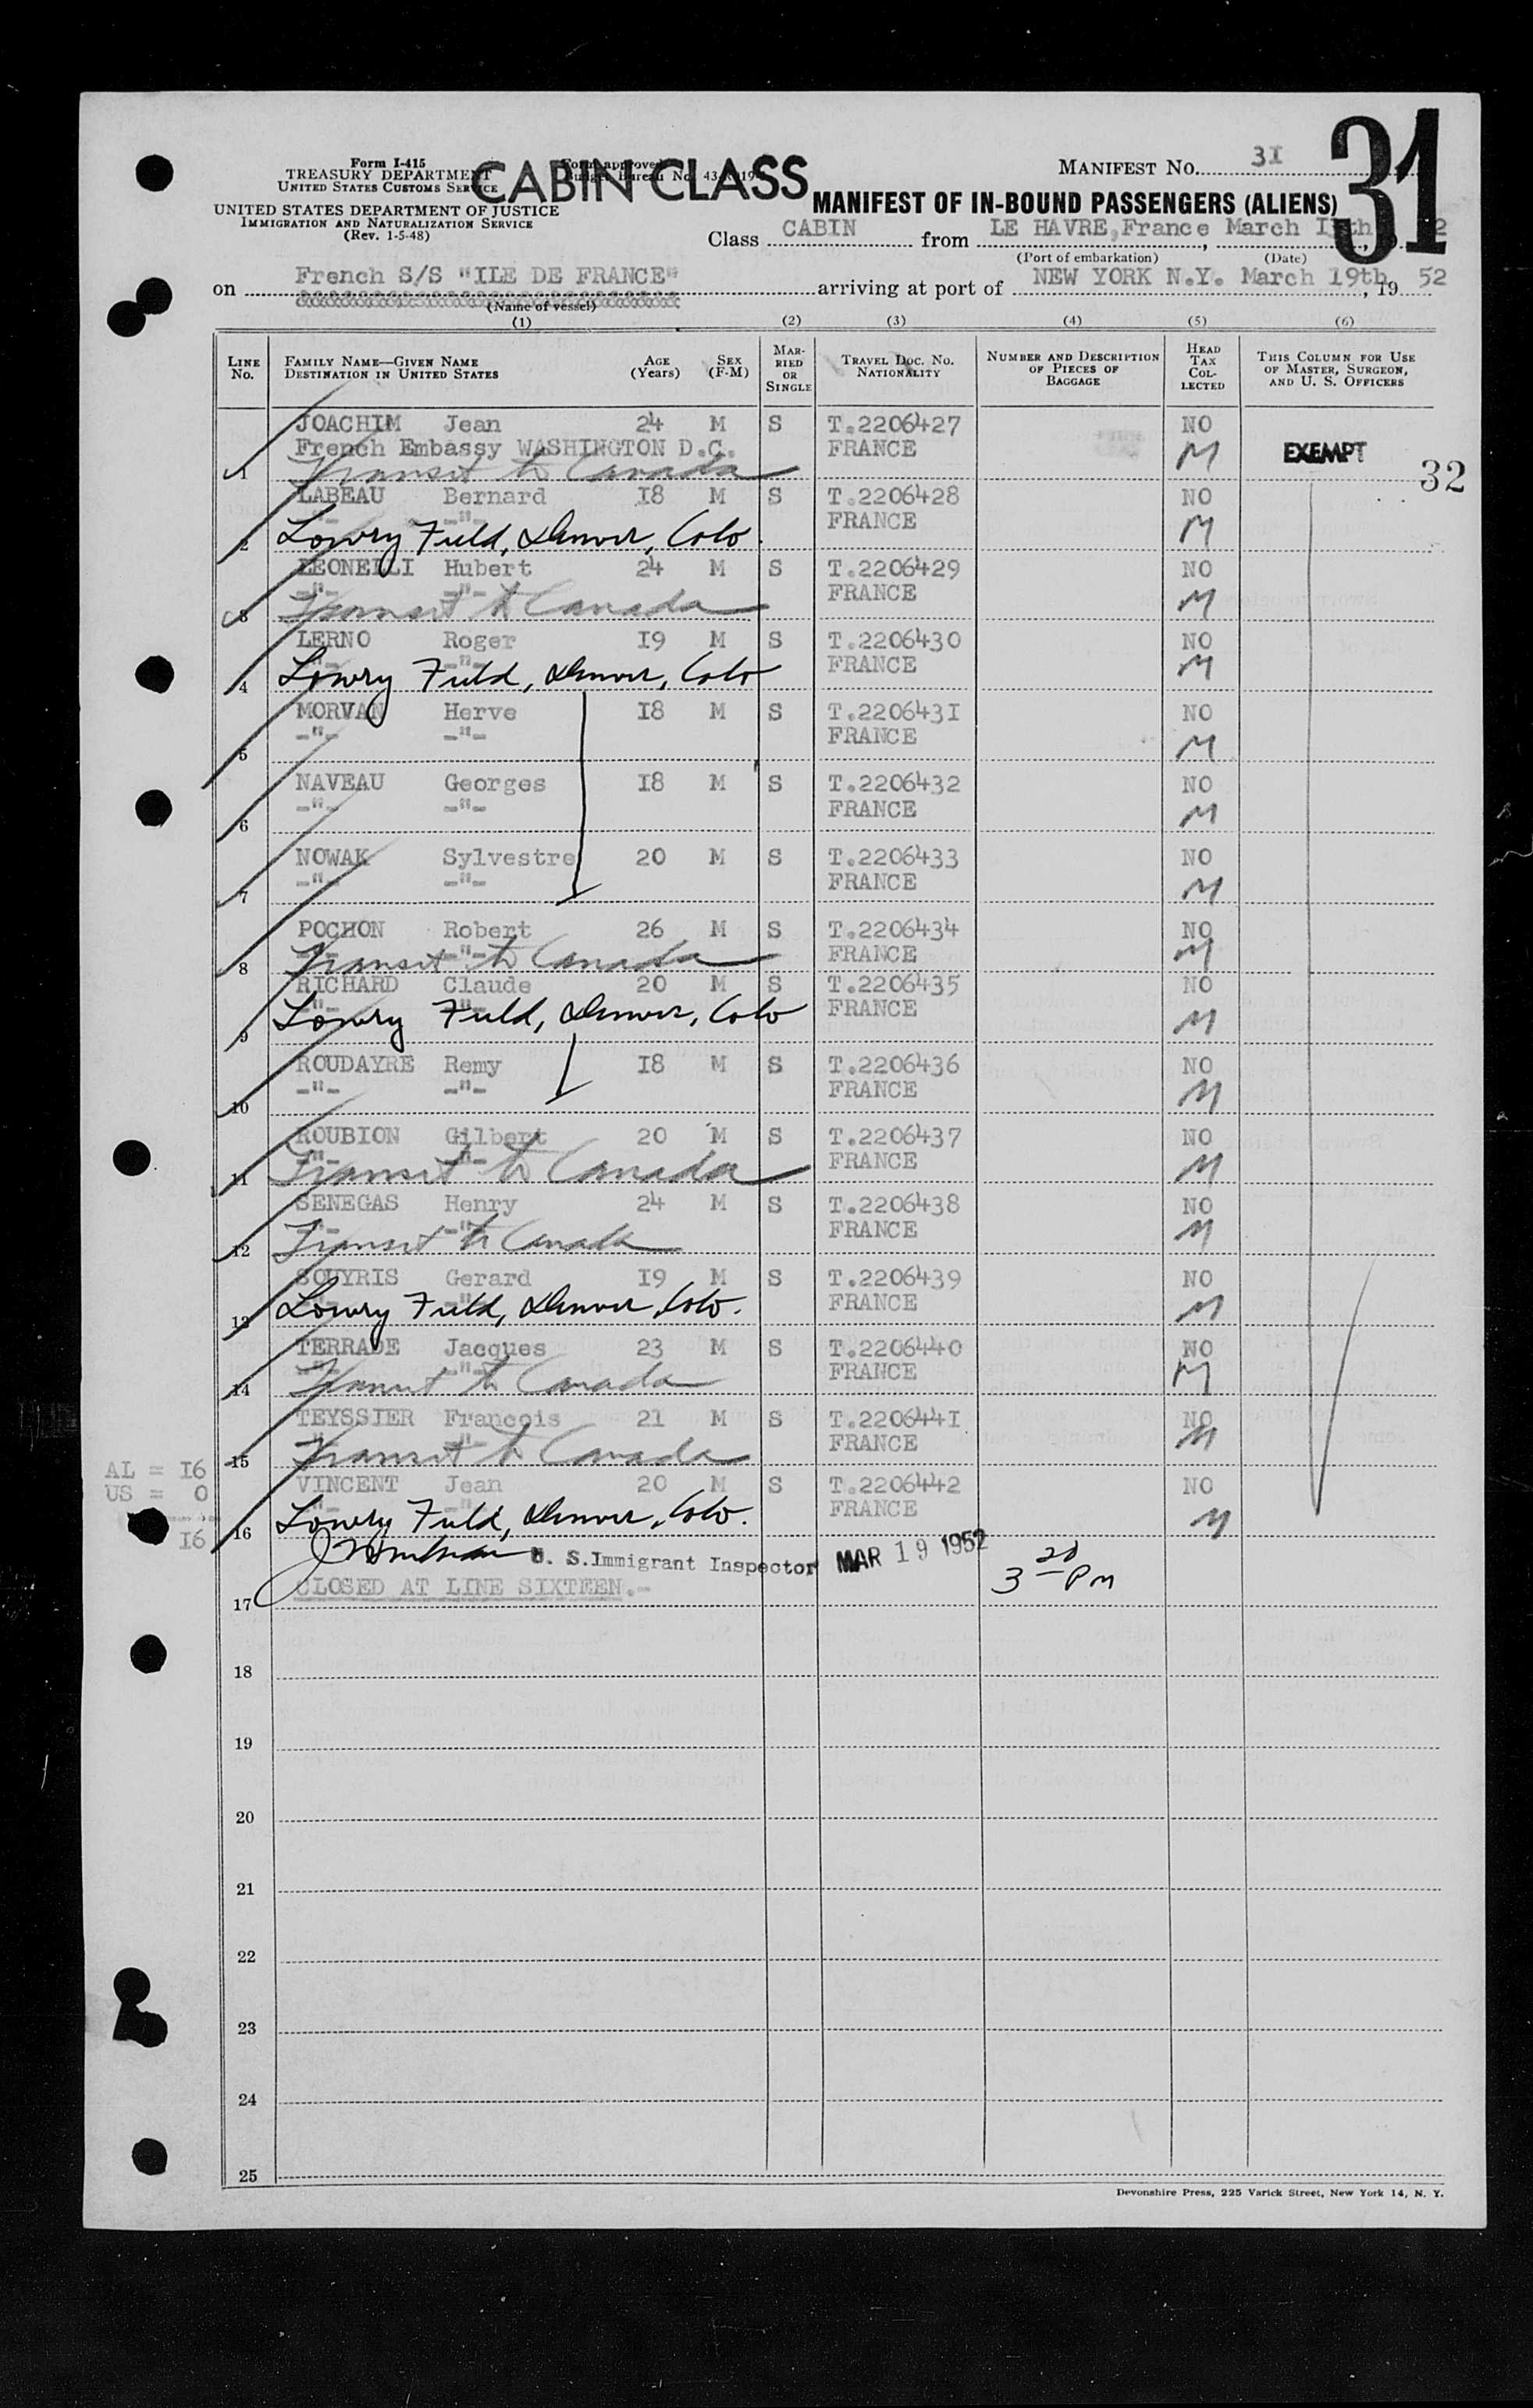 31
Form I-415
TREASURY DEPARTMENT
UNITED STATES CUSTOMS SERVICE
Form approved
Budget Bureau No. 43-
CABIN CLASS
MANIFEST NO. 3I
UNITED STATES DEPARTMENT OF JUSTICE
IMMIGRATION AND NATURALIZATION SERVICE
(Rev. 1-5-48)
MANIFEST OF IN-BOUND PASSENGERS (ALIENS)
Class CABIN from LE HAVRE, France, March
(Port of embarkation) (Date)
on French S/S "ILE DE FRANCE" arriving at port of NEW YORK N.Y. March 19th, 19 52
(Name of vessel)
(1) (2) (3) (4) (5) (6)
LINE No. FAMILY NAME—GIVEN NAME DESTINATION IN UNITED STATES AGE (Years) SEX (F-M) MARRIED OR SINGLE TRAVEL DOC. NO. NATIONALITY NUMBER AND DESCRIPTION OF PIECES OF BAGGAGE HEAD TAX COLLECTED THIS COLUMN FOR USE OF MASTER, SURGEON, AND U. S. OFFICERS
JOACHIM Jean 24 M S T.2206427 NO
French Embassy WASHINGTON D.C. FRANCE M EXEMPT
1 Transit to Canada 32
LABEAU Bernard I8 M S T.2206428 NO
-"- -"- FRANCE M
2 Lowry Field, Denver, Colo.
LEONELLI Hubert 24 M S T.2206429 NO
-"- -"- FRANCE M
3 Transit to Canada
LERNO Roger I9 M S T.2206430 NO
-"- -"- FRANCE M
4 Lowry Field, Denver, Colo
MORVAN Herve I8 M S T.220643I NO
-"- -"- FRANCE M
5
NAVEAU Georges I8 M S T.2206432 NO
-"- -"- FRANCE M
6
NOWAK Sylvestre 20 M S T.2206433 NO
-"- -"- FRANCE M
7
POCHON Robert 26 M S T.2206434 NO
-"- -"- FRANCE M
8 Transit to Canada
RICHARD Claude 20 M S T.2206435 NO
-"- -"- FRANCE M
9 Lowry Field, Denver, Colo
ROUDAYRE Remy I8 M S T.2206436 NO
-"- -"- FRANCE M
10
ROUBION Gilbert 20 M S T.2206437 NO
-"- -"- FRANCE M
11 Transit to Canada
SENEGAS Henry 24 M S T.2206438 NO
-"- -"- FRANCE M
12 Transit to Canada
SOUYRIS Gerard I9 M S T.2206439 NO
-"- -"- FRANCE M
13 Lowry Field, Denver, Colo.
TERRADE Jacques 23 M S T.2206440 NO
-"- -"- FRANCE M
14 Transit to Canada
TEYSSIER Francois 21 M S T.220644I NO
-"- -"- FRANCE M
15 Transit to Canada
AL = I6
US = 0
I6
VINCENT Jean 20 M S T.2206442 NO
-"- -"- FRANCE M
16 Lowry Field, Denver, Colo.
U. S. Immigrant Inspector MAR 19 1952 3 20 Pm
CLOSED AT LINE SIXTEEN.-
17
18
19
20
21
22
23
24
25
Devonshire Press, 225 Varick Street, New York 14, N. Y.